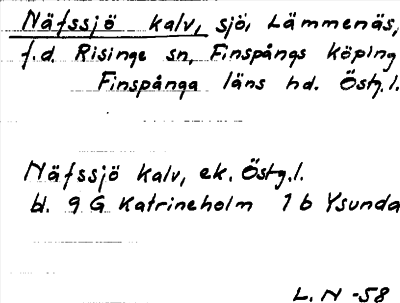 Näfssjö kalv, sjö, Lämmenäs,
f.d. Risinge sn, Finspångs köping
Finspånga läns hd. Östg.l.
Näfssjö kalv, ek. Östg.l.
bl. 9 G Katrineholm 1 b Ysunda
L. N -58